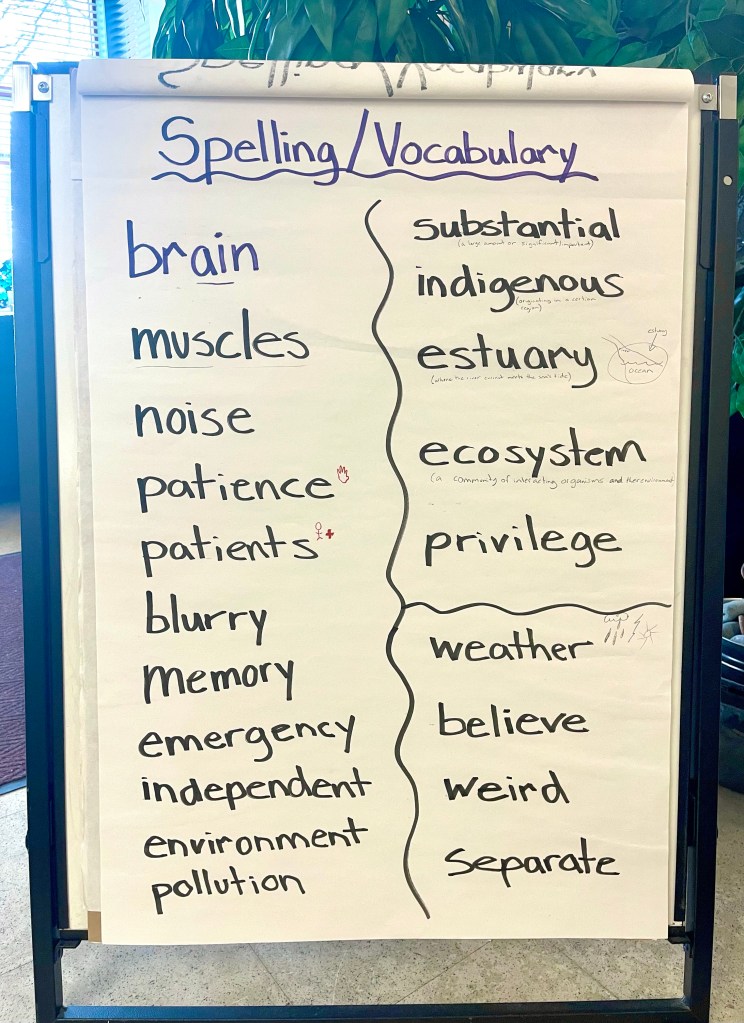 Spelling/Vocabulary
brain
muscles
noise
patience
patients
blurry
memory
emergency
independent
environment
pollution
substantial
(a large amount or significant/important)
indigenous
(originating in a certian
region)
estuary
(where the river current meets the sea's tide)
estuary
OCEAN
ecosystem
(a community of interacting organisms and their environment
privilege
weather
believe
weird
separate